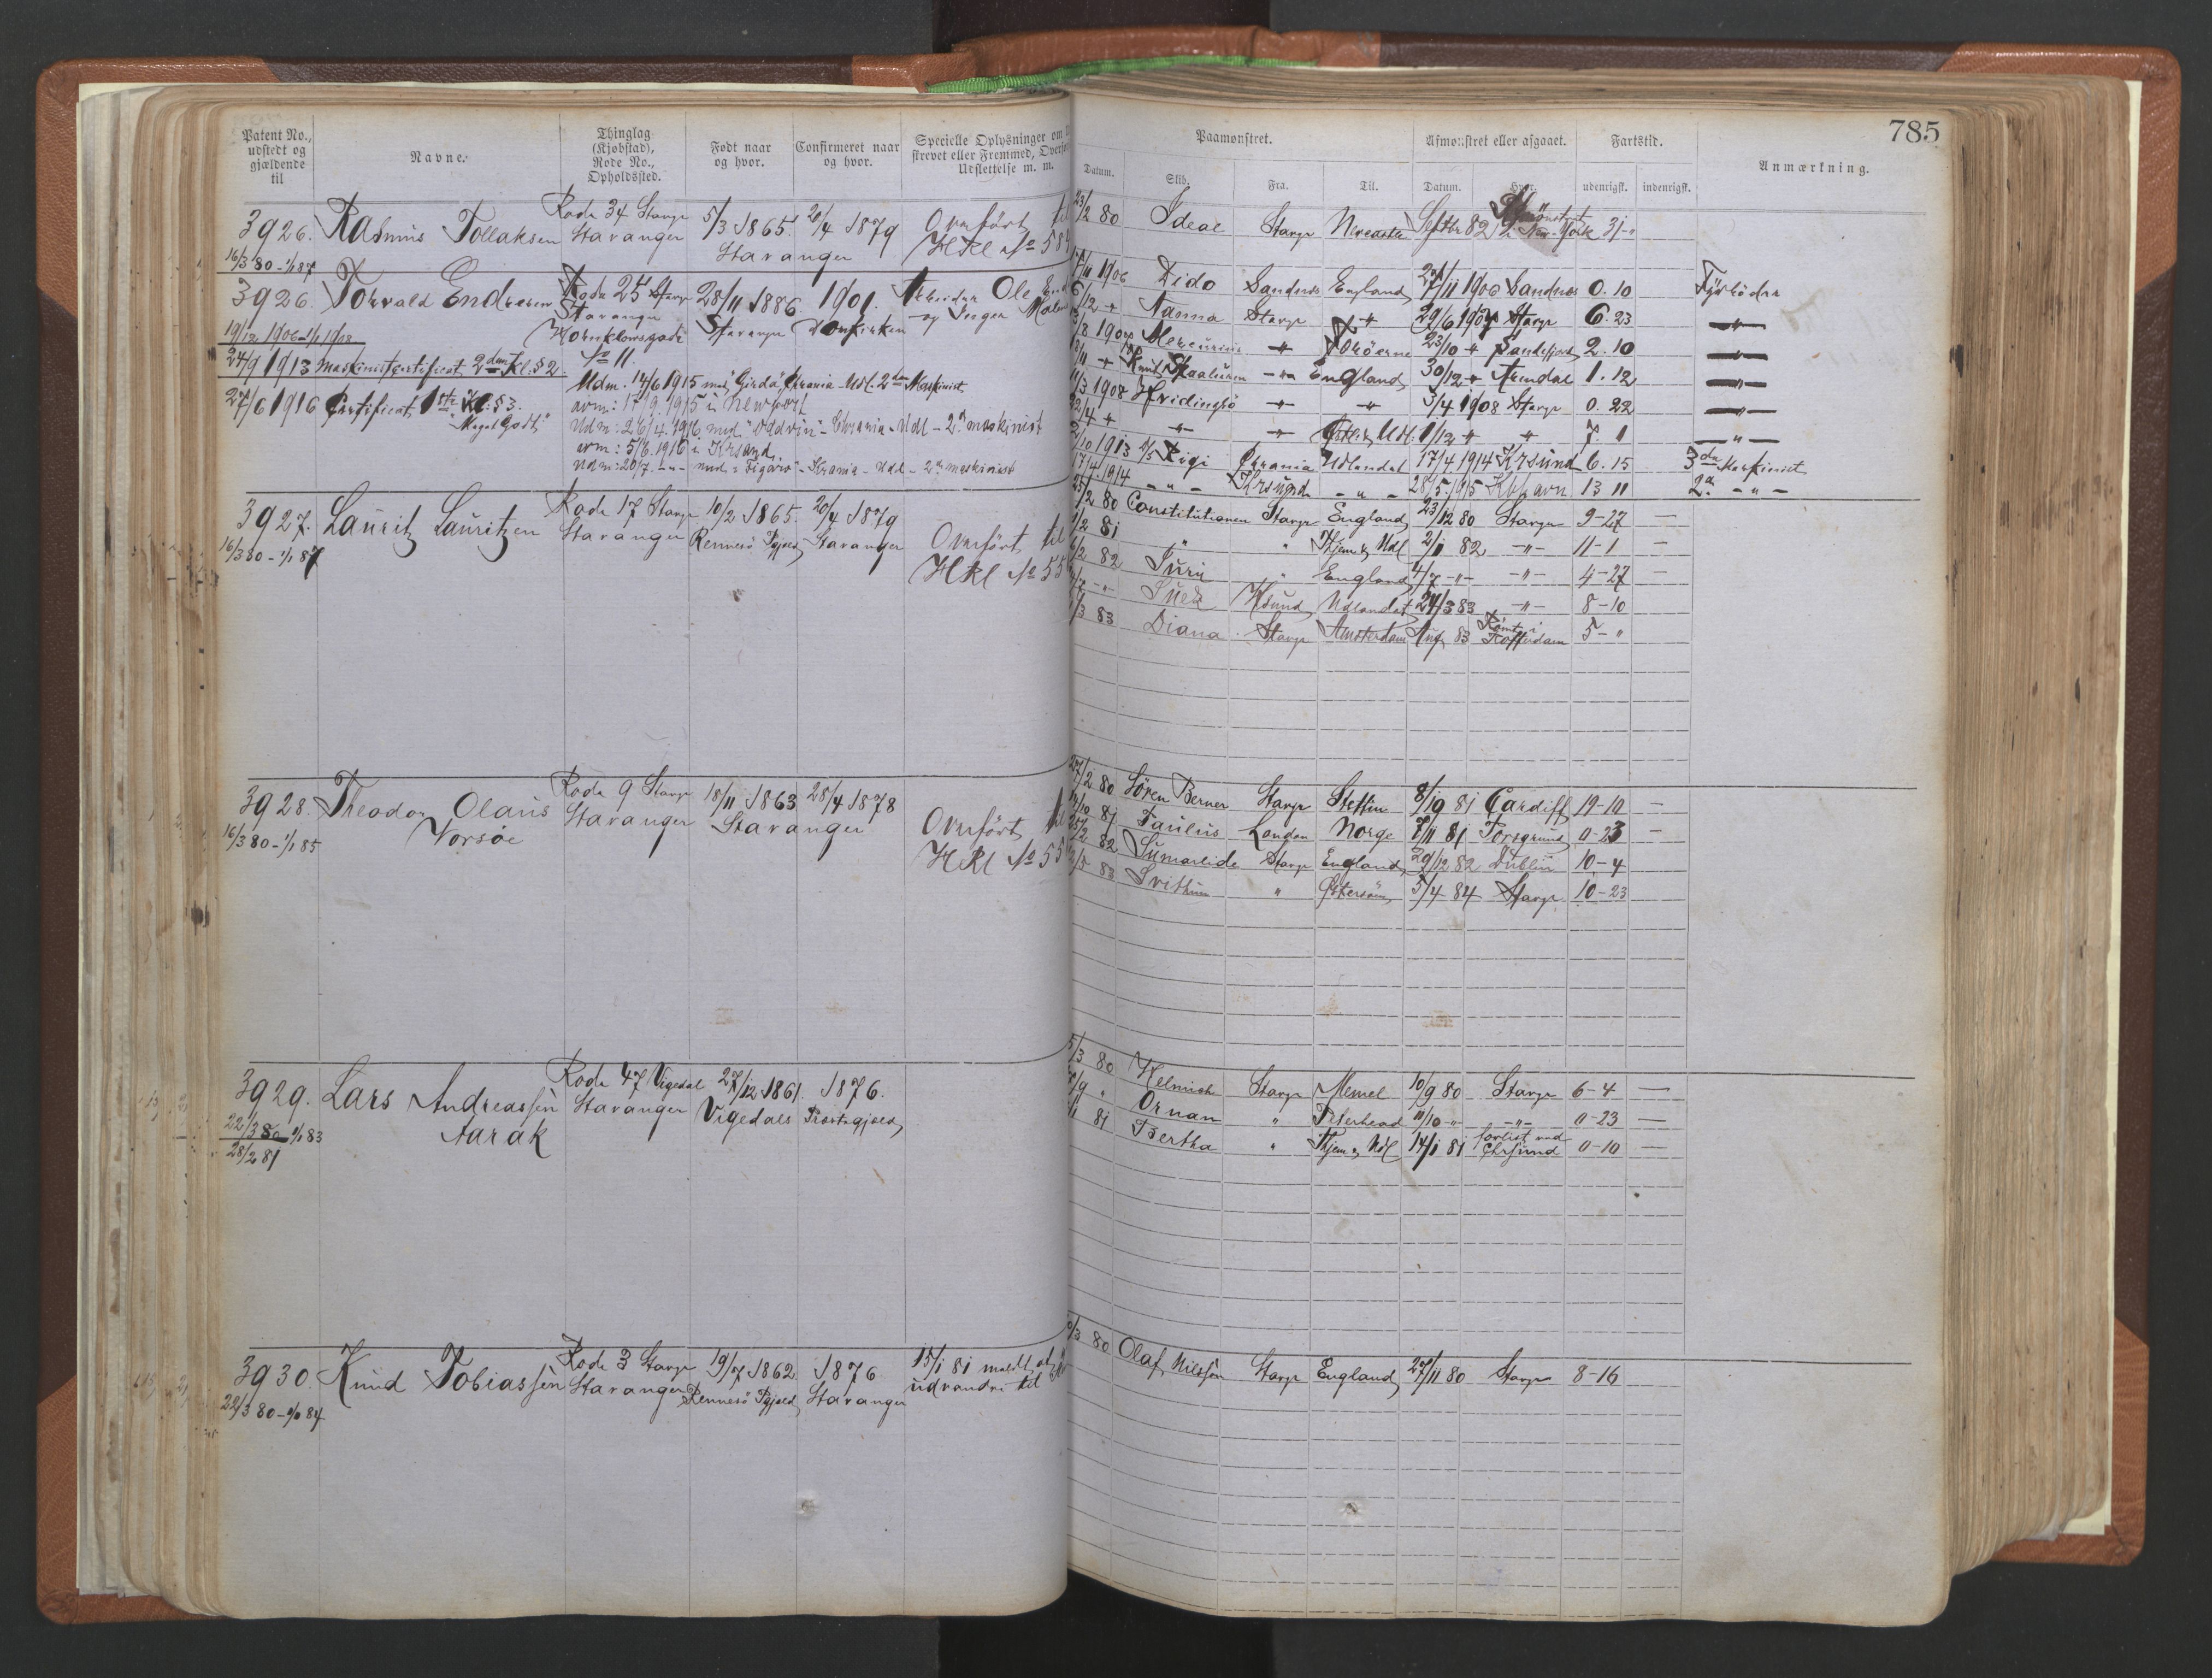 785
Patent No., udstedt og gjældende til
Navne.
Thinglag (Kjøbstad), Rode No., Opholdssted.
Født naar og hvor.
Confirmeret naar og hvor.
Specielle Oplysninger om
strevet eller Fremmed, Overfør
Udslettelse m. m.
Paamønstret.
Afmønstret eller afgaaet.
Fartstid.
Anmærkning.
Datum.
Skib.
Fra.
Til.
Datum.
Hvor.
udenrigsk.
indenrigsk.
3926. Rasmus Tollaksen
16/3 80 - 1/1 87
Rode 34 Stavgr Stavanger
5/3 1865. 20/4 1879
Stavanger
Overført til
HRl No 584
23/2 80 Ideal Stavgr Newcastle Septbr 82 New-York 31-"
3926. Torvald Endresen
19/12 1906 - 1/1 1908
Rode 25 Stavgr Stavanger
28/11 1886. 1901.
Stavanger Domkirken
Arbeider Ole End
og Inger Malen
24/9 1913 Maskinistcertificat 2den Kl. § 2
No 11
27/6 1916 Certificat 1ste Kl: § 3.
"Meget Godt"
Udm. 14/6 1915 med "Gerda" Chrania - Udl. 2den Maskinist
avm: 17/9. 1915 i Newport
Udm: 26/4. 1916 med "Oddvin" - Chrania - Udl - 2. maskinist
avm: 5/6. 1916 i Krsand.
Udm: 20/7. - " - med "Figaro" - Krania - Udl - 2den maskinist
1906 Dido Sandnes England 27/11 1906 Sandnes 0. 10 Fyrbøder
/12 " Nanna Stavgr " 29/6 1907 Stavgr 6. 23 - " -
/8 1907 Mercurius " Færøerne 23/10 " Sandefjord 2. 10 - " -
/11 " Knut Skaaluren - " - England 30/12 " Arendal 1. 12 - " -
/3 1908 Hvidingsø " " 3/4 1908 Stavgr 0. 22 - " -
22/4 " " " Udl: 1/12 " " 7. 1 - " -
2/10 1913 Rigi Chrania Udlandet 17/4 1914 Krsund 6. 15 3die Maskinist
17/4 1914 - " - Krsund - " - 28/5. 1915 Kbhavn 13 11 2den - " -
3927. Lauritz Lauritzen
16/3 80 - 1/1 87
Rode 17 Stavgr Stavanger
10/2 1865. 20/4 1879
Rennesø Pgjeld Stavanger
Overført til
HRl No 55
25/2 80 Constitutionen Stavgr England 23/12 80 Stavgr 9-27 -
/2 81 " " Hjem & Udl 2/1 82 - " - 11-1 -
/2 82 Juri " England 4/7 - " - - " - 4-27 -
Suez Udlandet 24/3 83 - " - 8-10
/3 83 Diana Stavgr Amsterdam Aug 83 Rømt i Rotterdam 5-"
3928. Theodor Olaus
Vorsøe
16/3 80 - 1/1 85
Rode 9 Stavgr Stavanger
18/11 1863 28/4 1878
Stavanger
Overført til
HRl No 55
27/2 80 Søren Berner Stavgr Stettin 8/9 81 Cardiff 19-10 -
/10 81 Paulus London Norge 7/11 81 Porsgrund 0-23 -
25/2 82 Sumarlide Stavgr England 29/12 82 Dublin 10-4
/5 83 Svithun " Østersøen 5/4 84 Stavgr 10-23
3929. Lars Andreassen
Aarak
22/3 80 1/1 83
28/2 81
Rode 47 Vigedal Stavanger
27/12 1861. 1876.
Vigedals Præstegjeld
5/3 80 Helmich Stavgr Memel 10/9 80 Stavgr 6-4 -
/9 " Ornan " Peterhead 11/10 - " - - " - 0-23 -
/1 81 Bertha " Hjem & Udl 14/1 81 forlist ved Chrsund 0-10 -
3930. Knud Tobiassen
22/3 80 - 1/1 84
Rode 3 Stavgr Stavanger
19/7 1862. 1876
Rennesø Pgjeld Stavanger
15/1 81 meldt at
udvandre til
/3 80 Olaf Nilssen Stavgr England 27/11 80 Stavgr 8-16